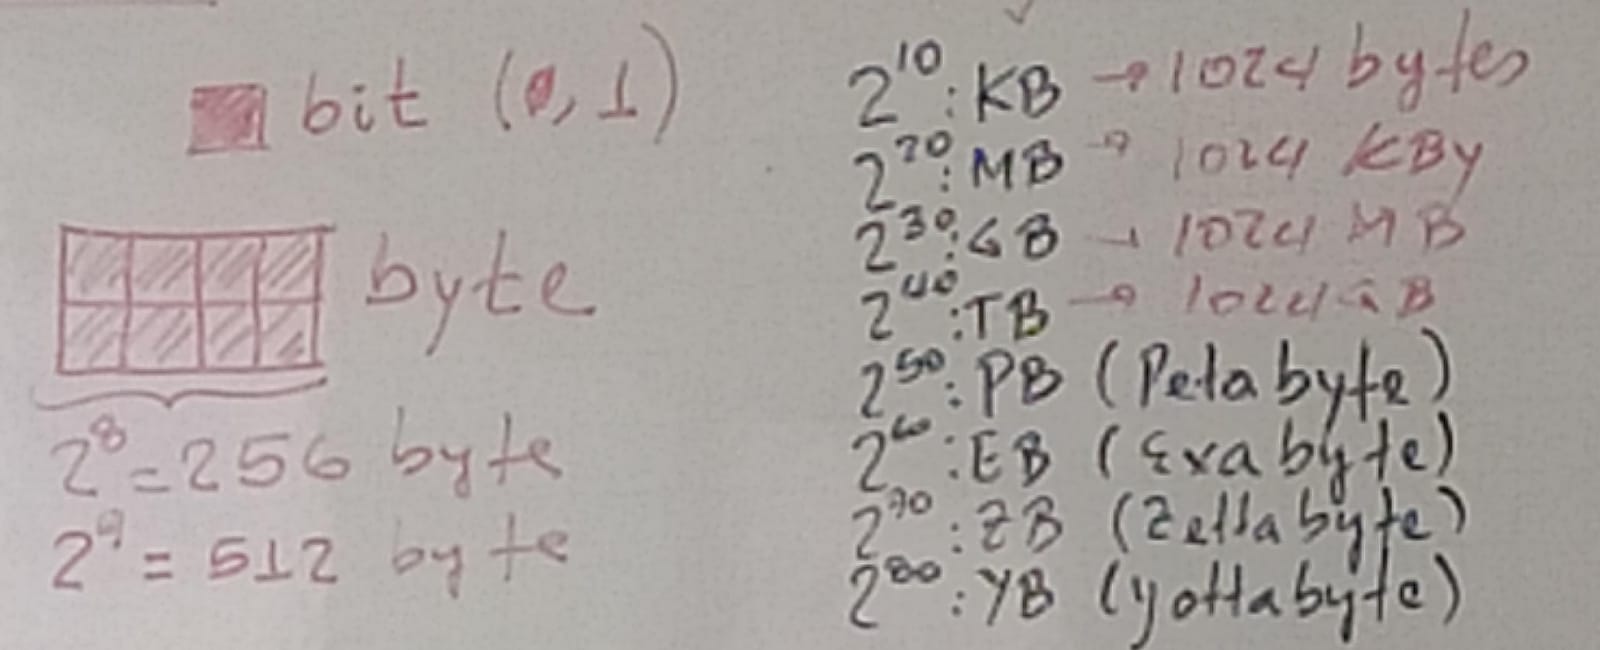 bit (0, 1)
byte
2⁸ = 256 byte
2⁹ = 512 byte
2¹⁰: KB → 1024 bytes
2²⁰: MB → 1024 KBy
2³⁰: GB → 1024 MB
2⁴⁰: TB → 1024 GB
2⁵⁰: PB (Petabyte)
2⁶⁰: EB (Exabyte)
2⁷⁰: ZB (Zettabyte)
2⁸⁰: YB (yottabyte)